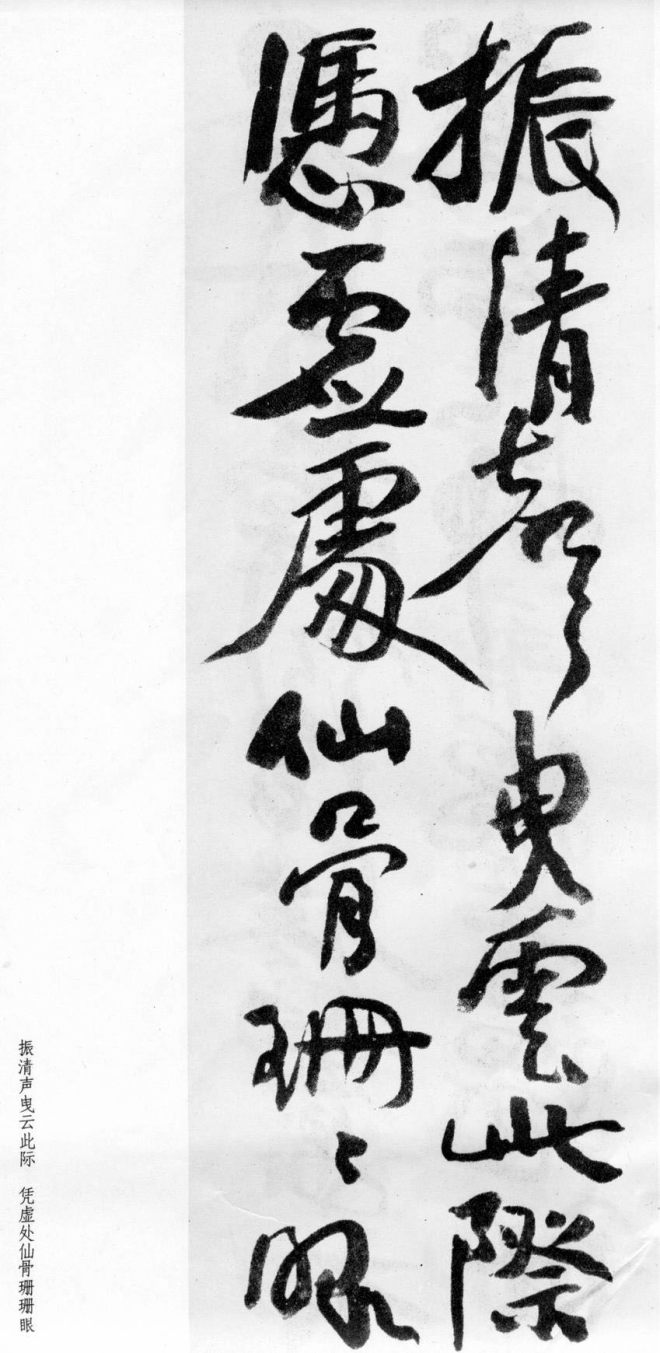 振清聲曳雲此際
憑虛處仙骨珊〻眼
振清声曳云此际 凭虚处仙骨珊珊眼